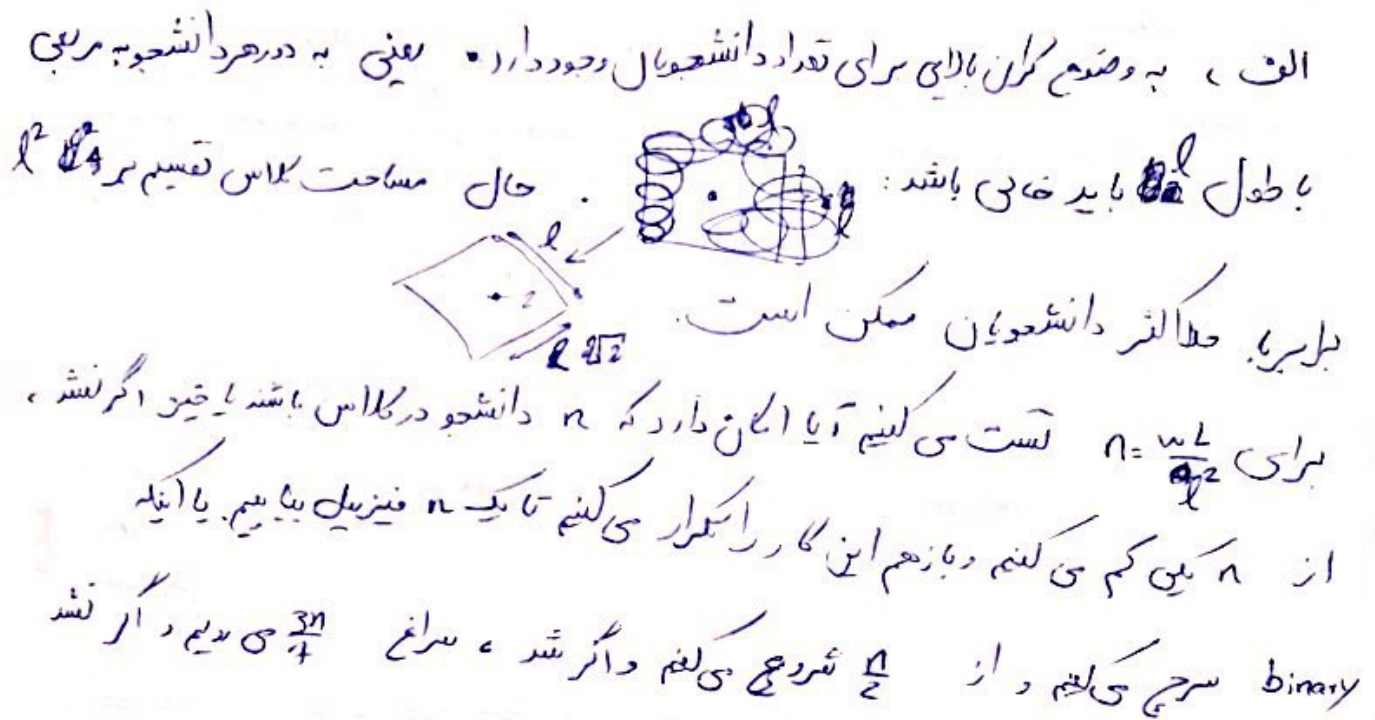 الف ، به وضوح کران بالایی برای تعداد دانشجویان وجود دارد. یعنی به دور هر دانشجو یه مربعی
با طول l باید خالی باشد: . حال مساحت کلاس تقسیم بر l²
l
l √2
برابر با حداکثر دانشجویان ممکن است.
برای n = wL/l² تست می کنیم آیا امکان دارد که n دانشجو در کلاس باشند یا خیر اگر نشد ،
از n یکی کم می کنیم و بازهم این کار را تکرار می کنیم تا یک n فیزیبل بیابیم. یا اینکه
binary سرچ می کنیم و از n/2 شروع می کنیم و اگر شد ، سراغ 3n/4 می رویم و اگر نشد